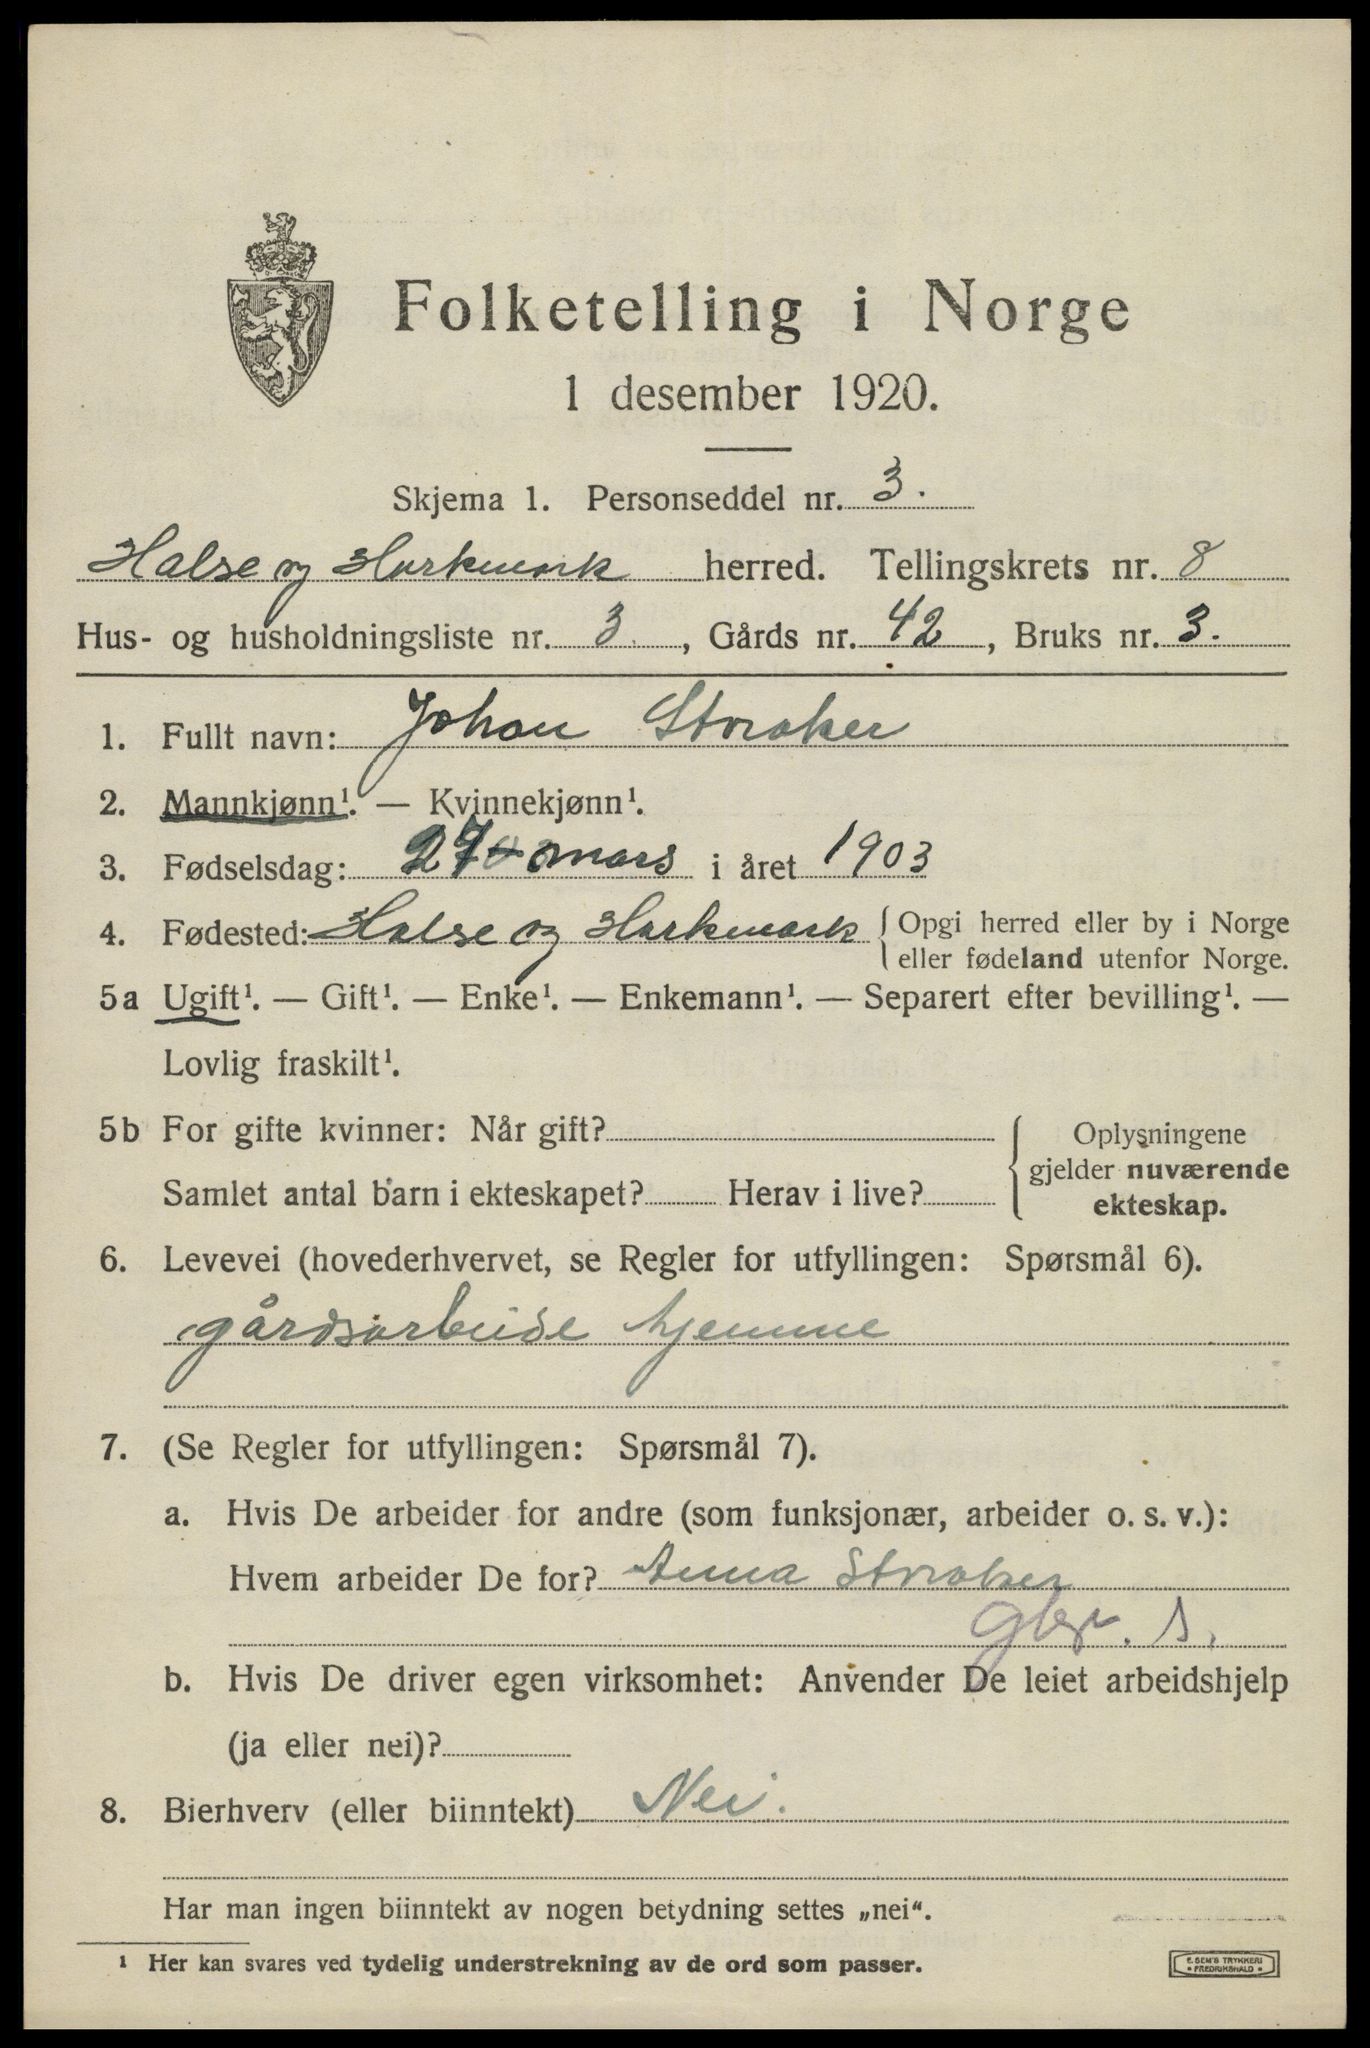 Folketelling i Norge
1 desember 1920.
Skjema 1. Personseddel nr. 3.
Halse og Harkmark herred. Tellingskrets nr. 8
Hus- og husholdningsliste nr. 3., Gårds nr. 42, Bruks nr. 3.
1. Fullt navn: Johan Stroker
2. Mannkjønn¹. — Kvinnekjønn¹.
3. Fødselsdag: 27 mars i året 1903
4. Fødested: Halse og Harkmark { Opgi herred eller by i Norge
eller fødeland utenfor Norge.
5a Ugift¹. — Gift¹. — Enke¹. — Enkemann¹. — Separert efter bevilling¹. —
Lovlig fraskilt¹.
5b For gifte kvinner: Når gift?
Samlet antal barn i ekteskapet? Herav i live?
Oplysningene
gjelder nuværende
ekteskap.
6. Levevei (hovederhvervet, se Regler for utfyllingen: Spørsmål 6).
gårdsarbeide hjemme
7. (Se Regler for utfyllingen: Spørsmål 7).
a. Hvis De arbeider for andre (som funksjonær, arbeider o. s. v.):
Hvem arbeider De for? Anna Stroker
gbr. s.
b. Hvis De driver egen virksomhet: Anvender De leiet arbeidshjelp
(ja eller nei)?
8. Bierhverv (eller biinntekt) Nei.
Har man ingen biinntekt av nogen betydning settes „nei“.
¹ Her kan svares ved tydelig understrekning av de ord som passer.
E. SEM'S TRYKKERI
• FREDRIKSHALD •